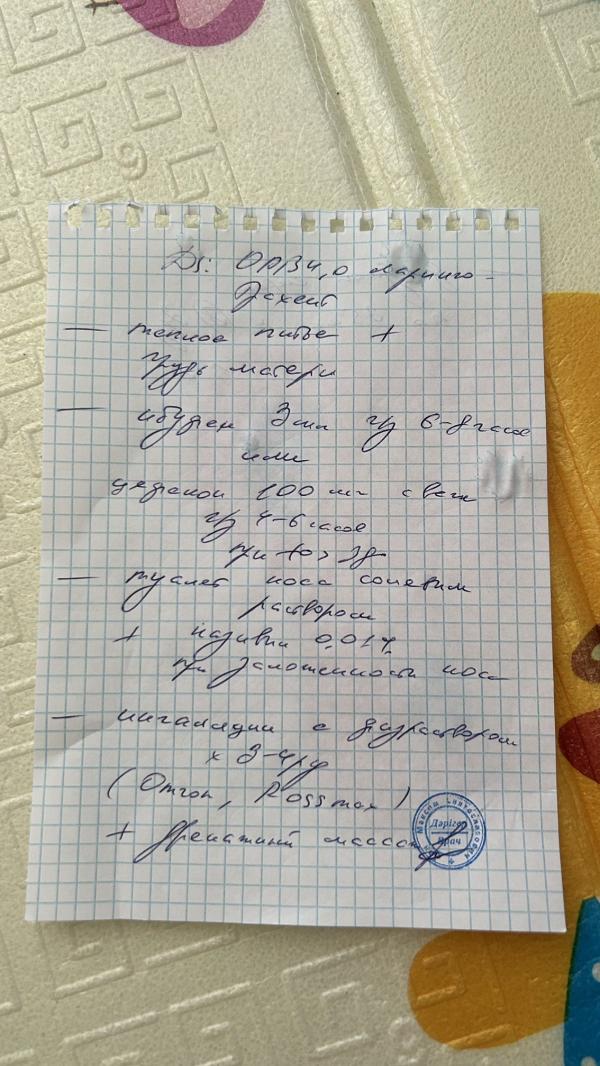 Ds: ОРВИ, о ларинго-
трахеит
— теплое питье +
грудь матери
— ибуфен 3 мл чз 6-8 часов
или
цефекон 100 мг свечи
чз 4-6 часов
при t° > 38
— туалет носа солевым
раствором
+ називин 0,01%
при заложенности носа
— ингаляции с физраствором
x 3-4 р/д
(Omron, Rossmax)
+ дренажный массаж
Дәрігер
Врач